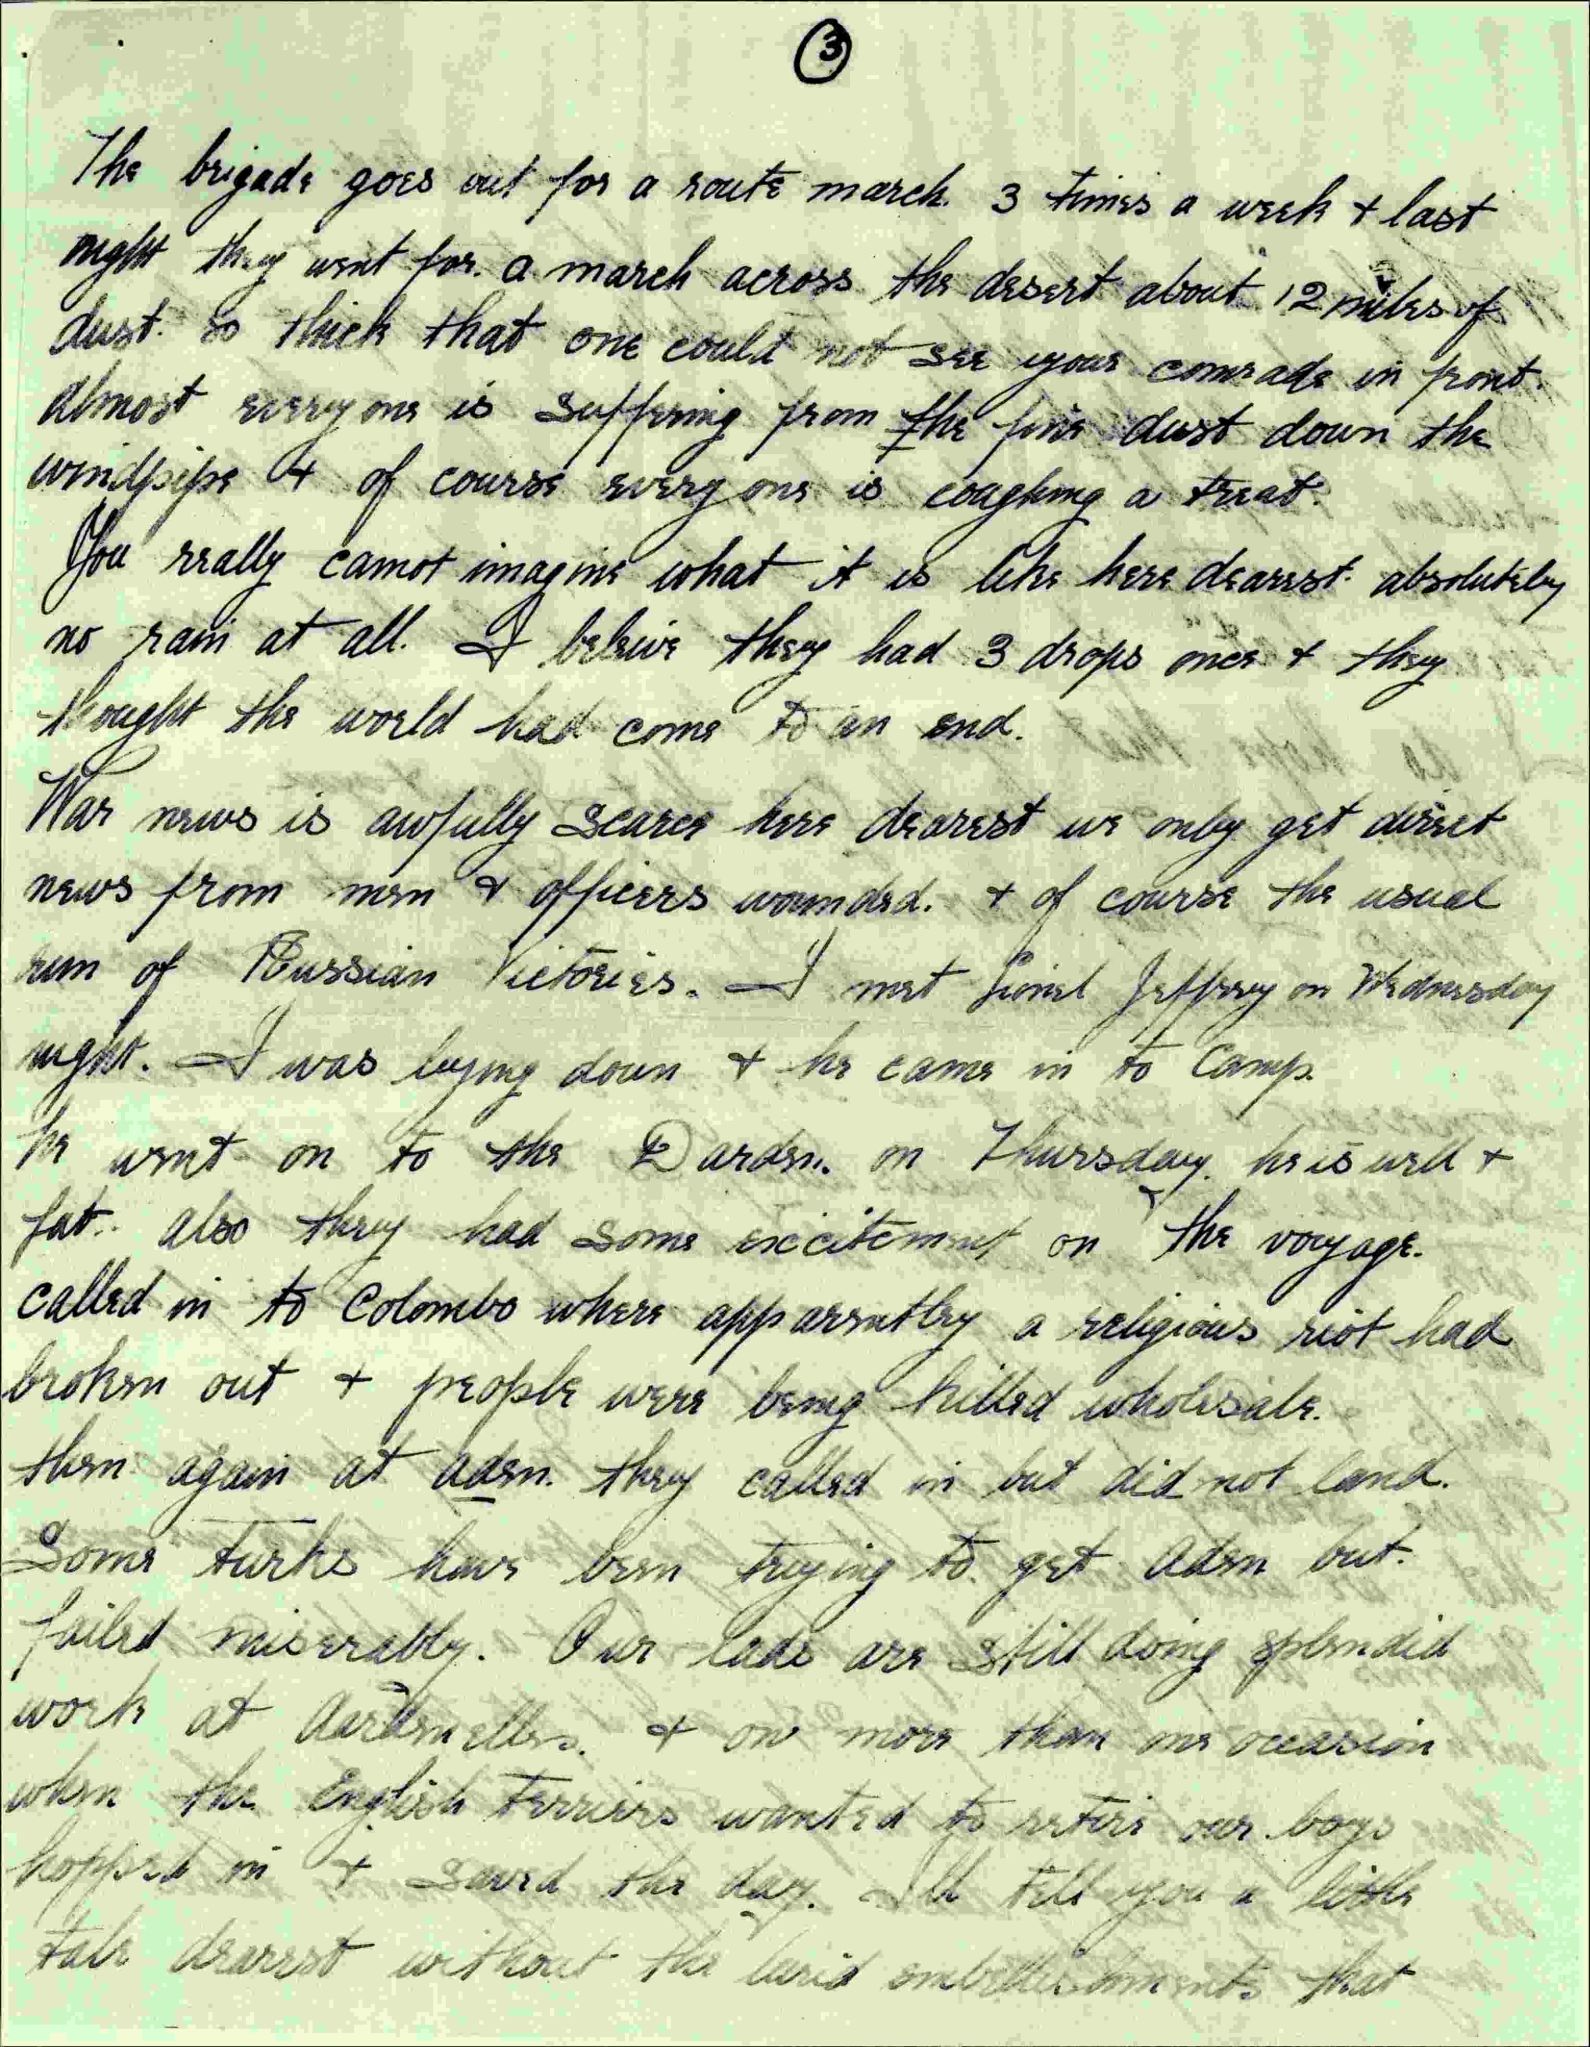 3
The brigade goes out for a route march. 3 times a week + last
night they went for. a march across the desert about 12 miles of
dust. so thick that one could not see your comrade in front.
almost everyone is suffering from the fine dust down the
windpipe + of course every one is coughing a treat.
You really cannot imagine what it is like here dearest. absolutely
no rain at all. I beleive they had 3 drops once + they
thought the world had come to an end.
War news is awfully scarce here dearest we only get direct
news from men + officers wounded. + of course the usual
run of Russian Victories. I met Lionel Jeffery on Wednesday
night. I was laying down + he came in to Camp.
he went on to the Darden. on Thursday. he is well +
fat. also they had some excitement on the voyage.
called in to Colombo where apparently a religious riot had
broken out + people were being killed wholesale.
then again at aden. they called in but did not land.
Some turks have been trying to get aden but.
failed miserably. Our lads are still doing splendid
work at dardenelles. + on more than one occasion
when the English terriers wanted to retire our boys
hopped in + saved the day. Ill tell you a little
tale dearest without the lurid embellishments that